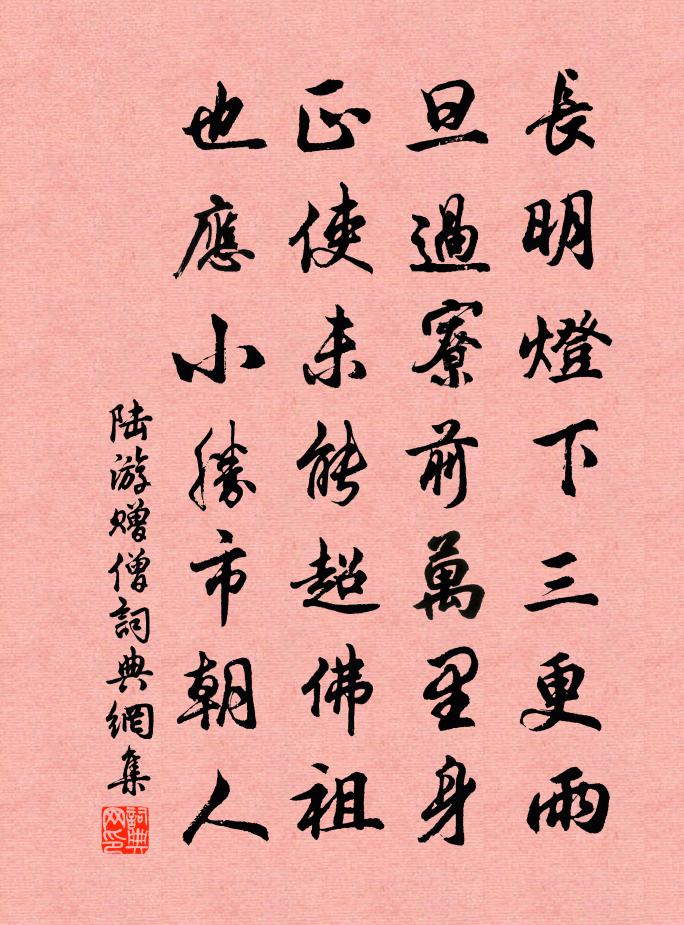 長明燈下三更雨
旦過寮前萬里身
正使未能超佛祖
也應小勝市朝人
陆游赠僧詞典網集
詞典网印